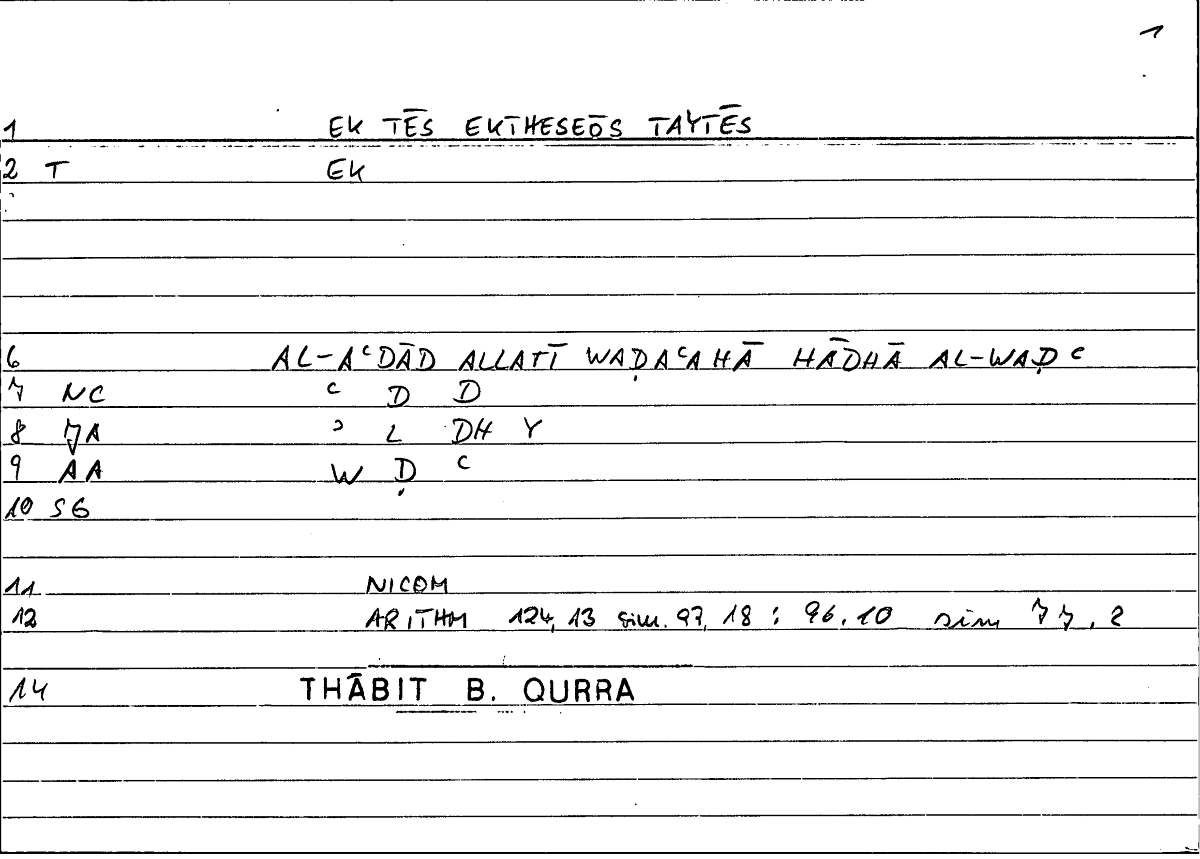 1
1 EK TĒS EKTHESEŌS TAYTĒS
2 T EK
6 AL-AʿDĀD ALLATĪ WAḌAʿAHĀ HĀDHĀ AL-WAḌʿ
7 NC ʿ D D
8 JA ʾ L DH Y
9 AA W Ḍ ʿ
10 SG
11 NICOM
12 ARITHM 124,13 sim. 97,18 : 96.10 sim 77.2
14 THĀBIT B. QURRA